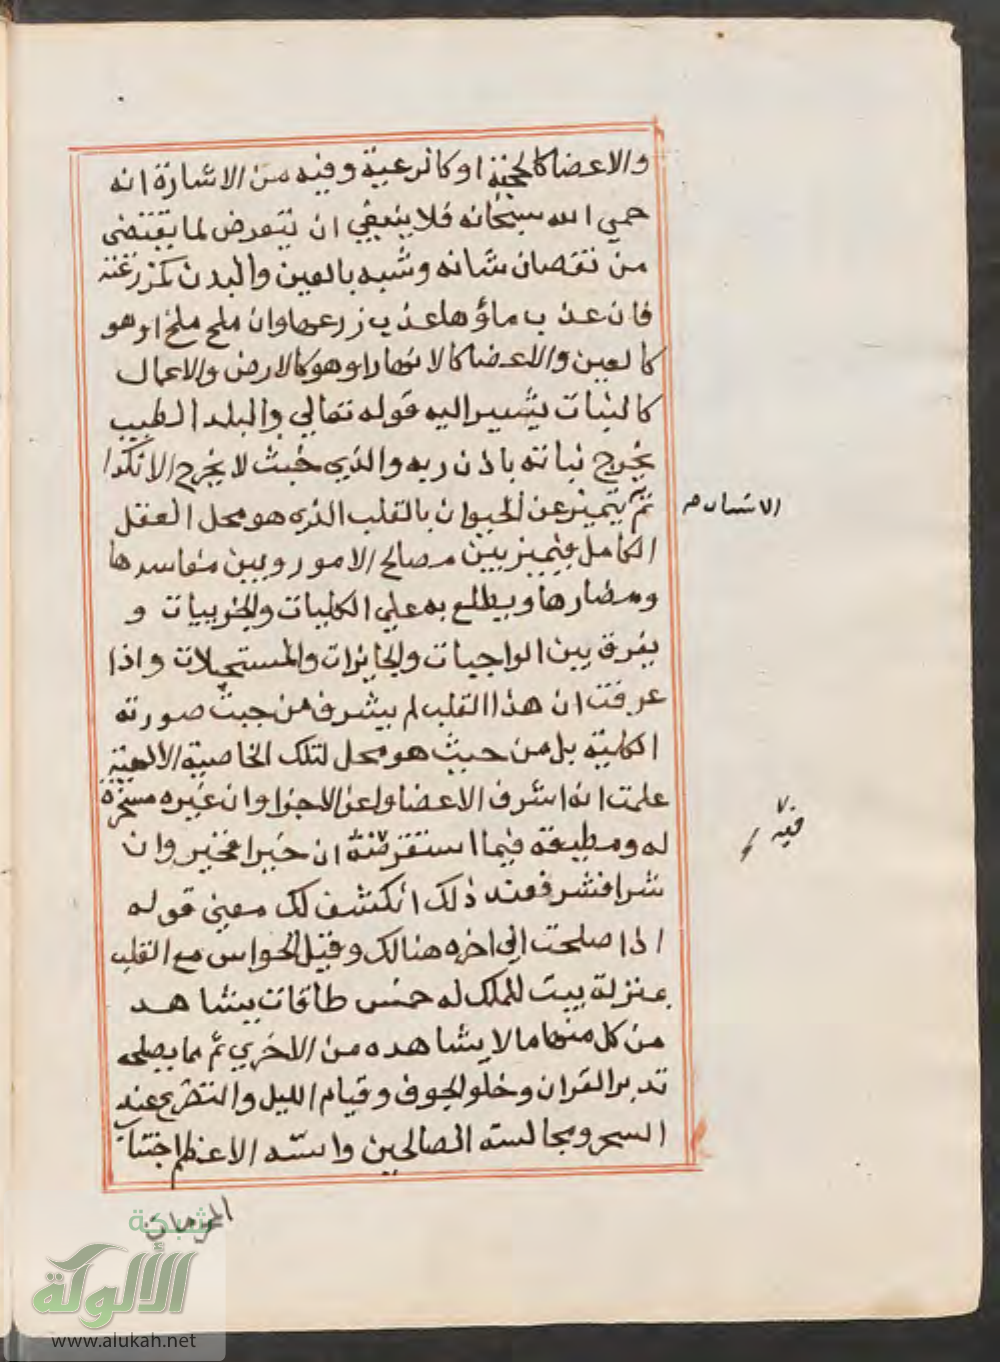 والاعضا كالجنة او كالرعية وفيه من الاشارة انه
حمي الله سبحانه فلا ينبغي ان يتعرض لما يقتضي
من نقصان شانه وشبه بالعين والبدن كمزرعته
فان عذب ماؤها عذب زرعها وان ملح ملح او هو
كالعين والاعضا كالانهار او هو كالارض والاعمال
كالنبات يشير اليه قوله تعالي والبلد الطيب
يخرج نباته باذن ربه والذي خبث لا يخرج الا نكدا
ثم يتميز عن الحيوان بالقلب الذي هو محل العقل
الانسان صح
الكامل فيميز بين مصالح الامور وبين مفاسدها
ومضارها ويطلع به علي الكليات والجزييات و
يفرق بين الواجبات والجائزات والمستحيلات واذا
عرفت ان هذا القلب لم يشرف من حيث صورته
الكلية بل من حيث هو محل لتلك الخاصية الالهية
علمت انه اشرف الاعضا واعز الاجزا وان غيره مسخرة
له ومطيعة فيما استقر منه ان خيرا فخير وان
فيه
شرا فشر فعند ذلك انكشف لك معني قوله
اذا صلحت الي اخره هنالك وقيل الحواس مع القلب
بمنزلة بيت للملك له خمس طاقات يشاهد
من كل منها ما لا يشاهده من الاخري ثم مما يصلحه
تدبر القران وخلو الجوف وقيام الليل والتضرع عند
السحر ومجالسة الصالحين واسه الاعظم اجتناب
المحرمات
شبكة
الألوكة
www.alukah.net